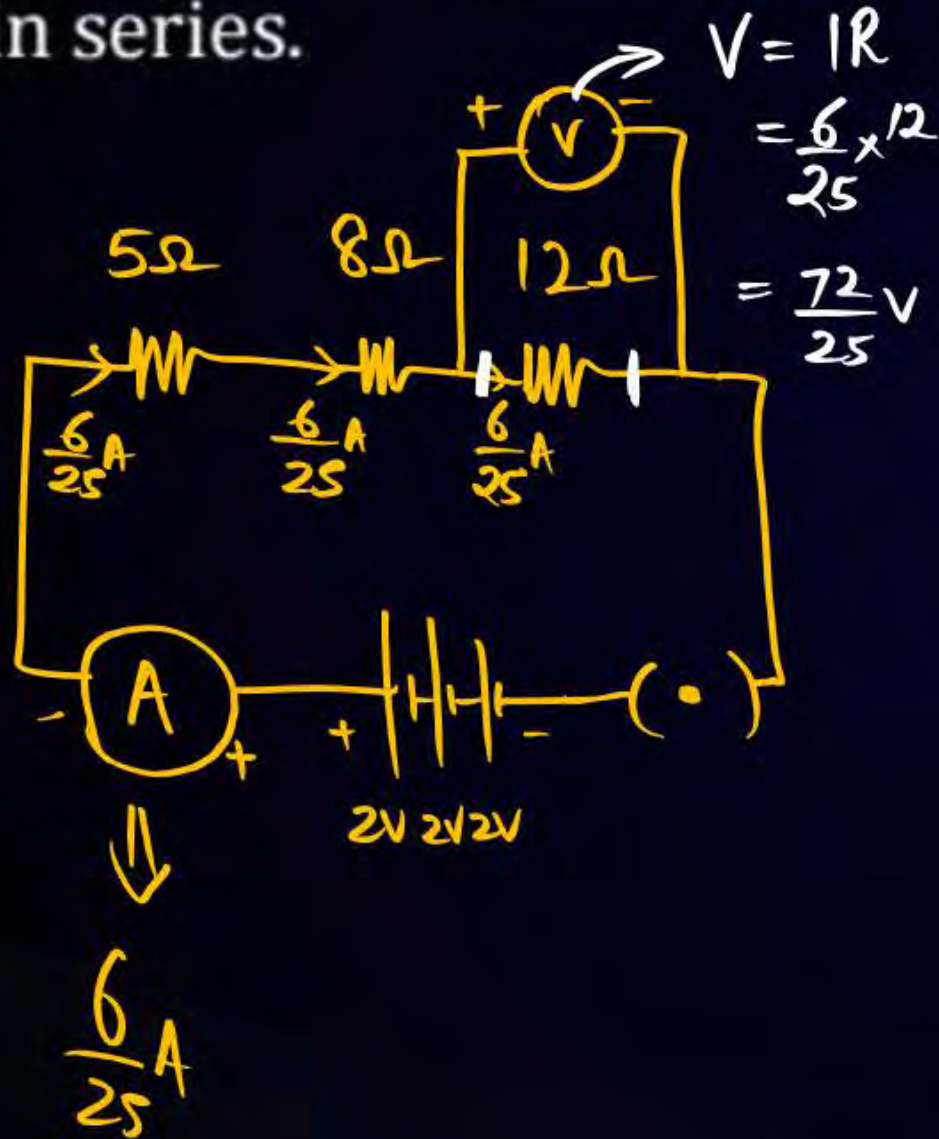 in series.
V = IR
= 6/25 x 12
= 72/25 V
+ V -
5Ω 8Ω 12Ω
6/25 A 6/25 A 6/25 A
- A + + - (•)
2V 2V 2V
⇓
6/25 A